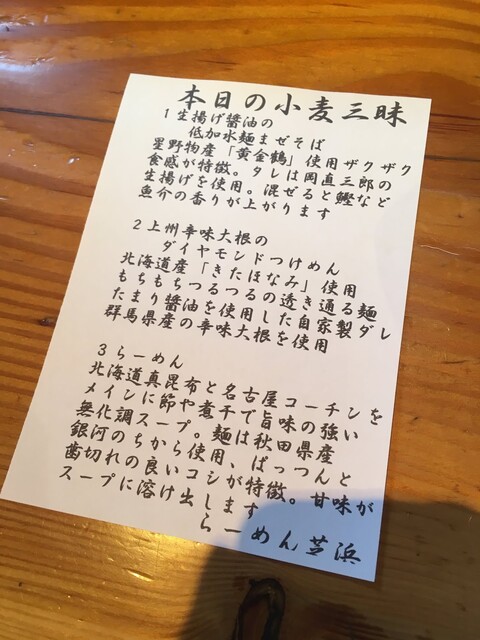 本日の小麦三昧
1生揚げ醤油の
低加水麺まぜそば
星野物産「黄金鶴」使用ザクザク
食感が特徴。タレは岡直三郎の
生揚げを使用。混ぜると鰹など
魚介の香りが上がります
2上州辛味大根の
ダイヤモンドつけめん
北海道産「きたほなみ」使用
もちもちつるつるの透き通る麺
たまり醤油を使用した自家製ダレ
群馬県産の辛味大根を使用
3らーめん
北海道真昆布と名古屋コーチンを
メインに節や煮干で旨味の強い
無化調スープ。麺は秋田県産
銀河のちから使用、ぱっつんと
歯切れの良いコシが特徴。甘味が
スープに溶け出します
らーめん芝浜